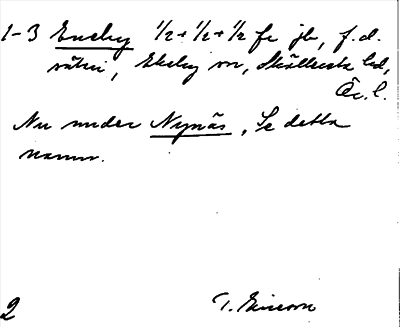 1-3 Eneby 1/2+1/2+1/2 fr jb, f.d.
säteri, Ekeby sn, Skölleersta hd,
Ör. l.
Nu under Nynäs, Se detta
namn.
2 T. Ericsson